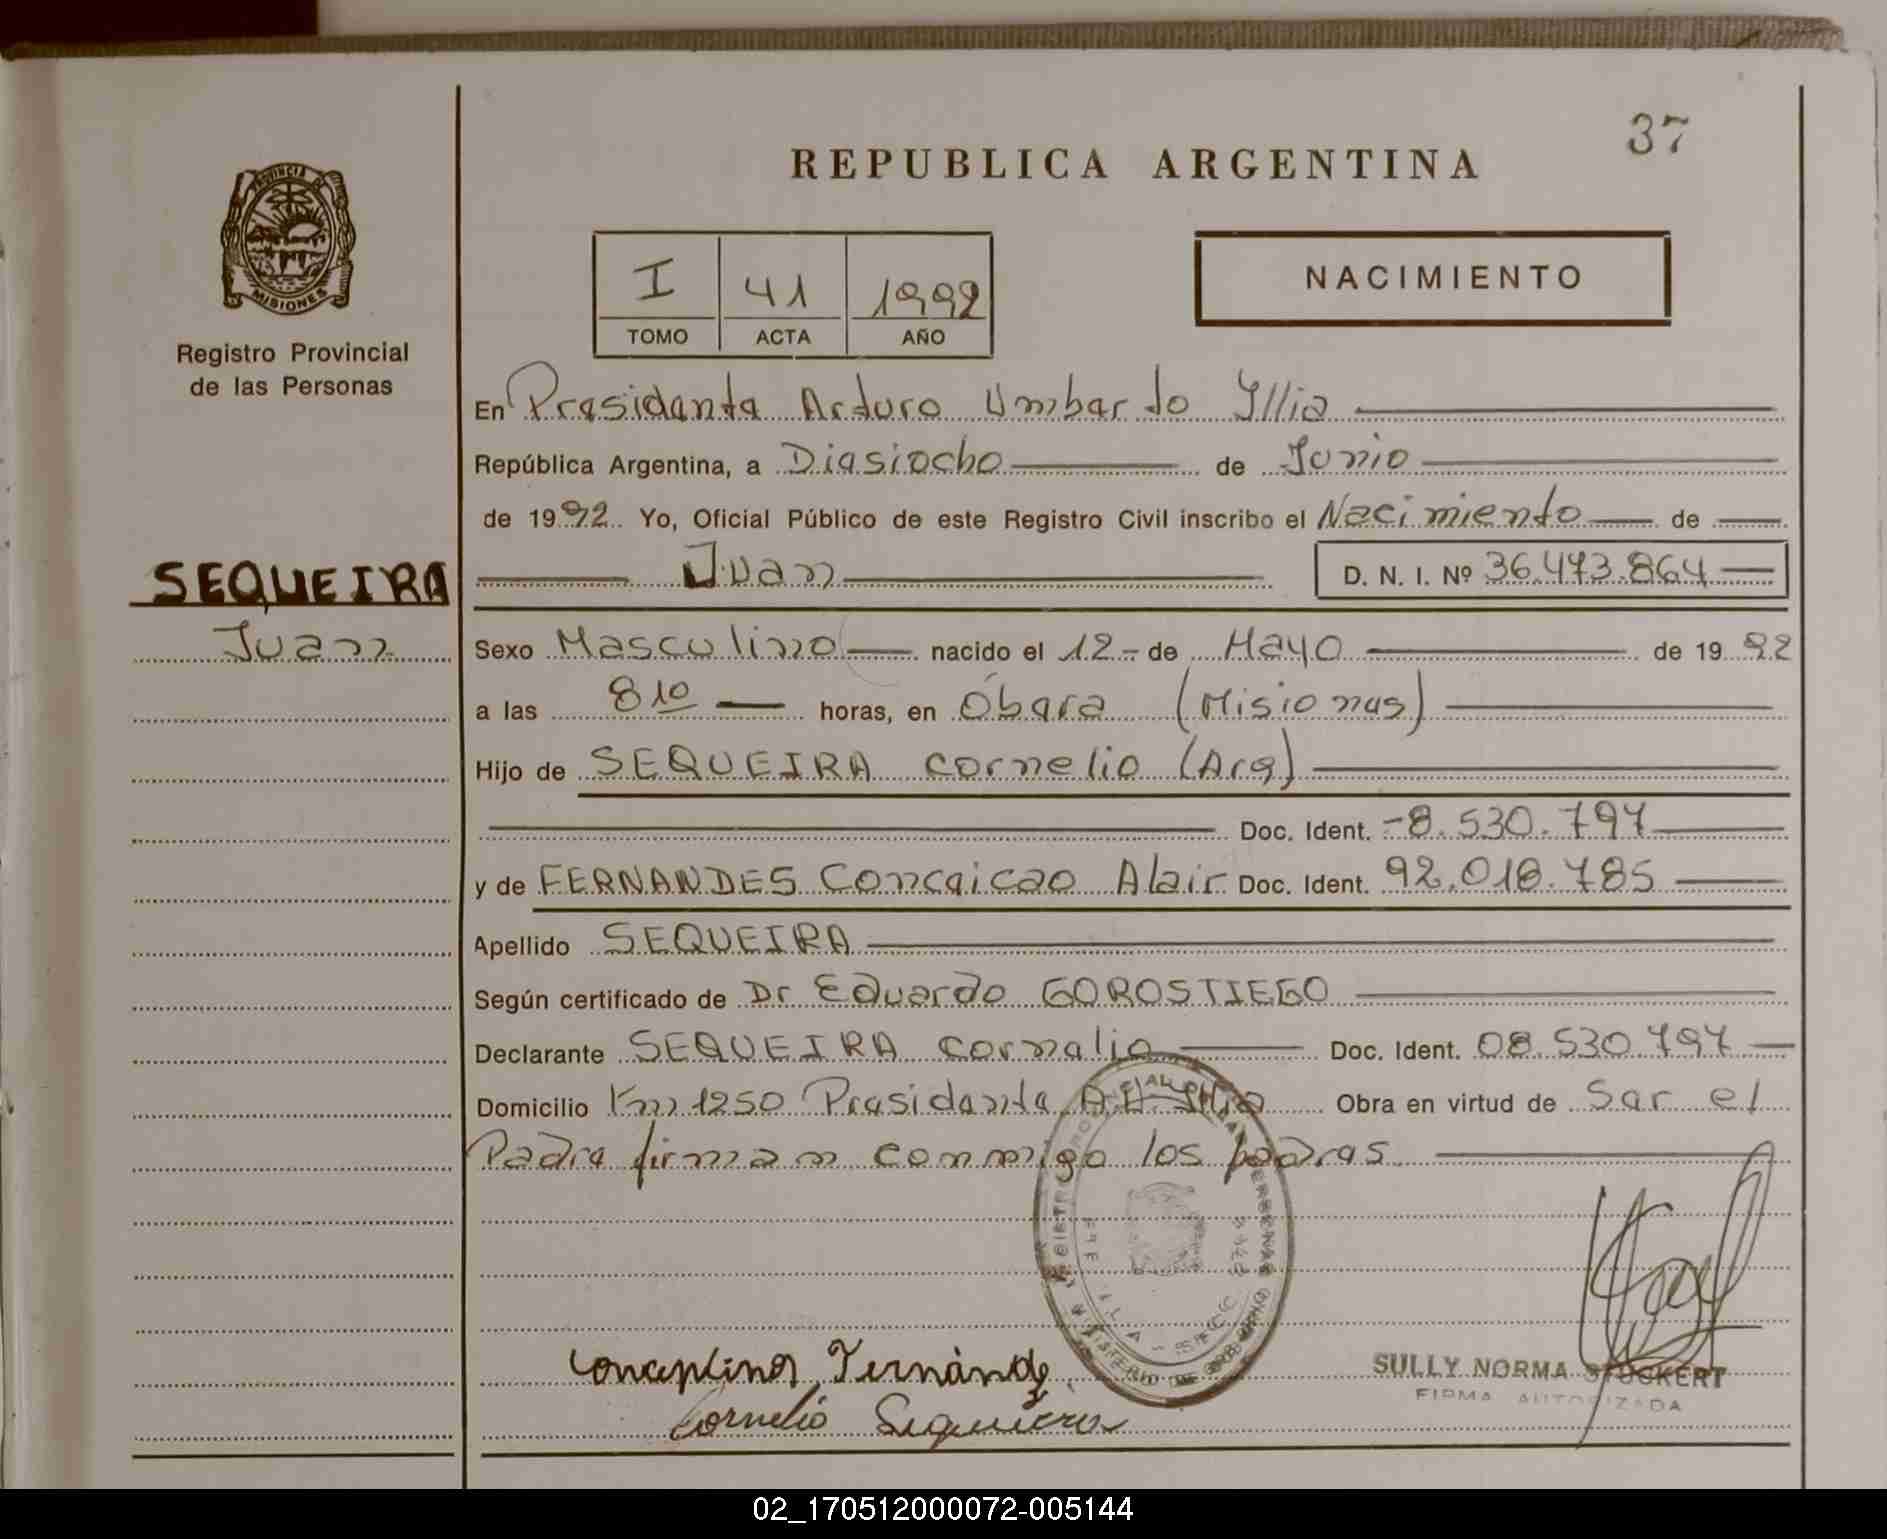 37
REPUBLICA ARGENTINA
PROVINCIA DE
MISIONES
Registro Provincial
de las Personas
I 41 1992
TOMO ACTA AÑO
NACIMIENTO
En Presidente Arturo Umberto Yllia
República Argentina, a Diesiocho de Junio
de 1992. Yo, Oficial Público de este Registro Civil inscribo el Nacimiento de
Juan D. N. I. Nº 36.473.864
SEQUEIRA
Juan
Sexo Masculino nacido el 12 de Mayo de 1992
a las 8 10 horas, en Óbera (Misiones)
Hijo de SEQUEIRA Cornelio (Arg)
Doc. Ident. 8.530.797
y de FERNANDES Conceicao Alair Doc. Ident. 92.018.785
Apellido SEQUEIRA
Según certificado de Dr Eduardo GOROSTIEGO
Declarante SEQUEIRA Cornelio Doc. Ident. 08.530.797
Domicilio Km 1250 Presidente A.U. Yllia Obra en virtud de Ser el
Padre firman conmigo los padres
Cornelio Sequiera
SULLY NORMA STOCKERT
FIRMA AUTORIZADA
02_170512000072-005144